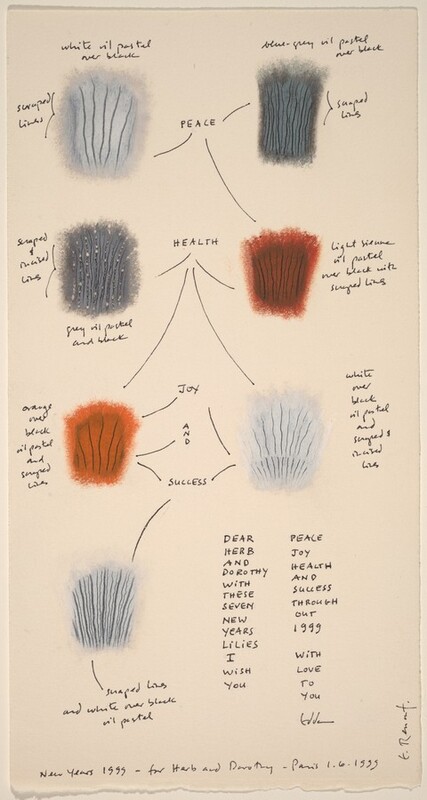 white oil pastel
over black
blue-grey oil pastel
over black
scraped
lines
scraped
lines
PEACE
HEALTH
scraped
&
incised
lines
grey oil pastel
and black
light sienne
oil pastel
over black with
scraped lines
JOY
AND
SUCCESS
orange
over
black
oil pastel
and
scraped
lines
white
over
black
oil pastel
and
scraped &
incised
lines
scraped lines
and white over black
oil pastel
DEAR
HERB
AND
DOROTHY
WITH
THESE
SEVEN
NEW
YEARS
LILIES
I
WISH
YOU
PEACE
JOY
HEALTH
AND
SUCCESS
THROUGH
OUT
1999
WITH
LOVE
TO
YOU
Edda
E. Renouf.
New Years 1999 - for Herb and Dorothy - Paris 1.6.1999